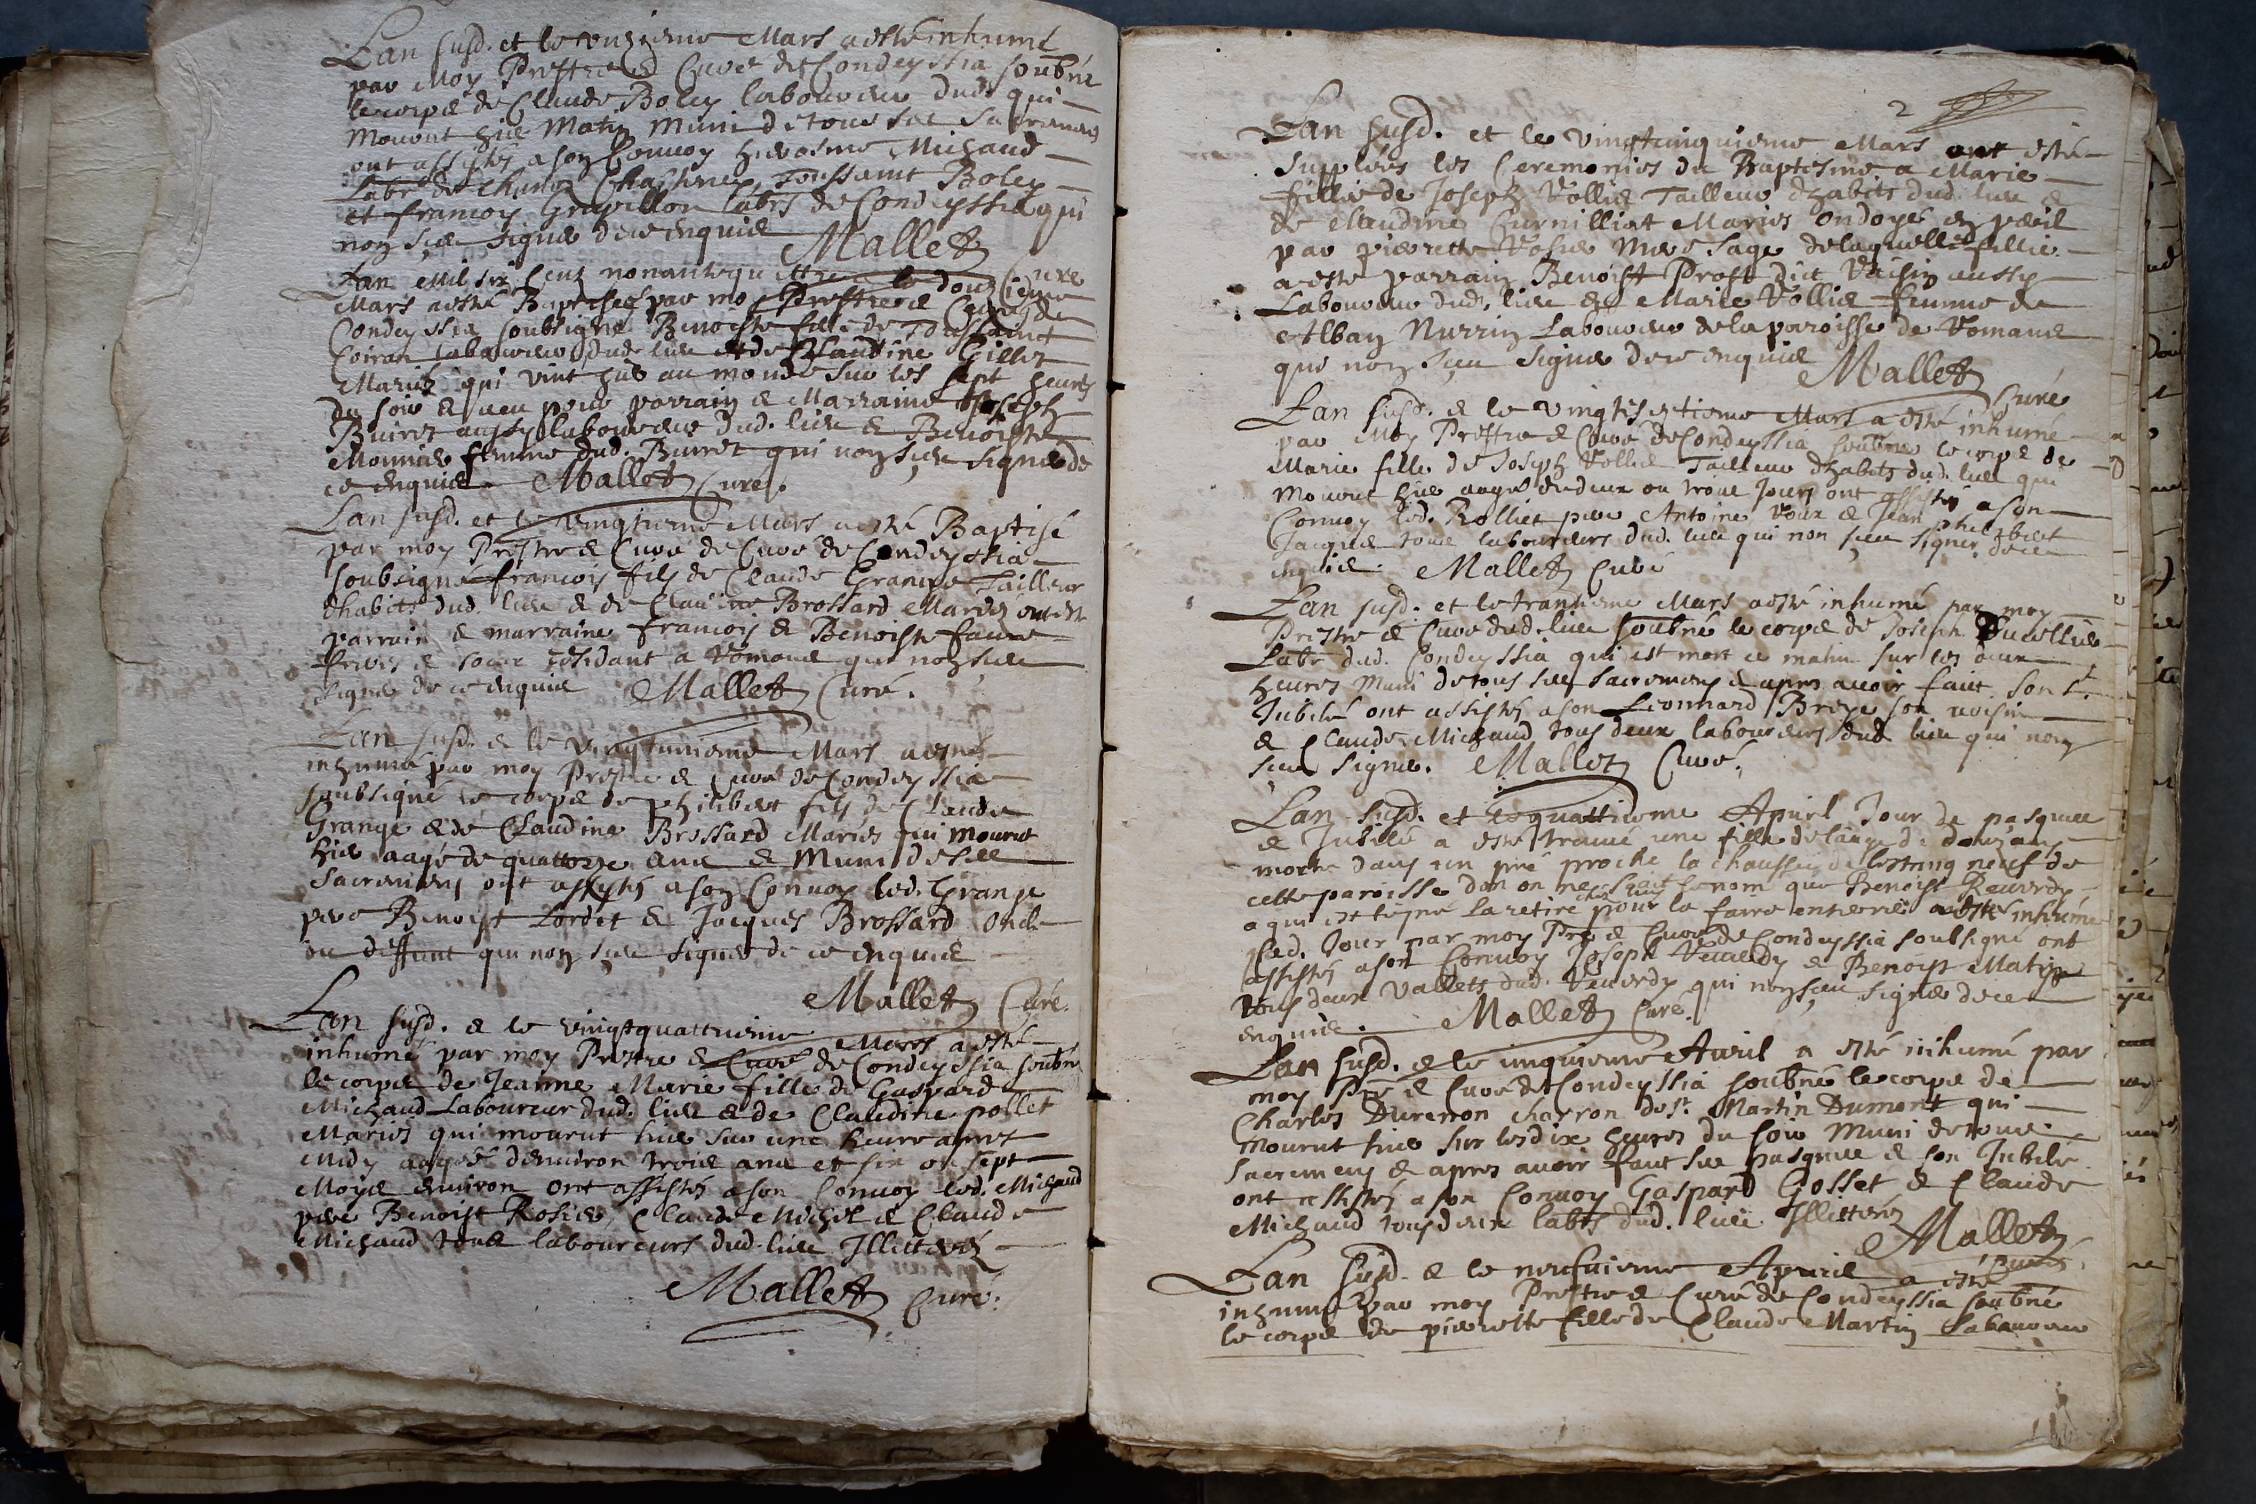 Lan susd. et le onzieme Mars a esté inhumé
par Moy Prestre et Curé de Condeyssia soubné
le corps de Claude Boley laboureur dud. qui
Mourut hier Matin Muni de tous ses Sacremens
ont assistés a son Convoy hierosme Michaud
Labr de Toussaint Boley
et françoy Grapillon labrs de Condeyssia qui
non sceu signer de ce enquis Mallet
Curé
Lan Mil six Cens nonante quattre et le douzieme
Mars a esté Baptisée par moy Prestre et Curé de
Condeyssia soubsigné Benoiste fille de Toussainct
Coiran laboureur dud. lieu et de Claudine Gillet
Mariés qui vint hier au monde sur les sept heures
du soir et a eu pour parrain et Marraine Joseph
Buiret aussy laboureur dud. lieu et Benoiste
Monnier femme dud. Buiret qui non sceu signer de
ce enquis Mallet Curé.
Lan susd. et le vingtieme Mars a esté Baptisé
par moy Prestre et Curé de Curé de Condeyssia
soubsigné françois fils de Claude Grange Tailleur
dhabits dud. lieu et de Claudine Brossard Mariés ont esté
parrain et marraine françoy et Benoiste faure
freres et soeur residant a Vomane qui non sceu
signer de ce enquis Mallet Curé.
Lan susd. et le vingtunieme Mars a esté
inhumé par moy Prestre et Curé de Condeyssia
soubsigné le corps de philibert fils de Claude
Grange et de Claudine Brossard Mariés qui mourut
hier aagé de quattorze ans et Muni de ses
Sacremens ont assistés a son Convoy led. Grange
pere Benoist Cordet et Jacques Brossard oncle
du deffunt qui non sceu signer de ce enquis
Mallet Curé.
Lan susd. et le vingtquattrieme Mars a esté
inhumé par moy Prestre et Curé de Condeyssia soubné
le corps de Jeanne Marie fille de Gaspard
Michaud Laboureur dud. lieu et de Claudine pollet
Mariés qui mourut hier sur une heure apres
Midy aagée denviron trois ans et six ou sept
Moys environ ont assistés a son Convoy led. Michaud
pere Benoist Rosier, Claude Michel et Claude
Michaud tous laboureurs dud. lieu Illetterés
Mallet Curé.
2
Lan susd. et le vingtcinquieme Mars ont esté
supplées les Ceremonies du Baptesme a Marie
fille de Joseph Vollier Tailleur dhabits dud. lieu et
de Claudine Curnilliat Mariés ondoyée en peril
par pierrette Rosier Mere sage de laquelle fille
a esté parrain Benoist Prost dict Vaisin aussy
Laboureur dud. lieu et Marie Vollier femme de
Albay Nurrin Laboureur de la paroisse de Vomane
qui non sceu signer de ce enquis Mallet
Curé
Lan susd. et le vingtseptieme Mars a esté inhumé
par Moy Prestre et Curé de Condeyssia soubné le corps de
Marie fille de Joseph Vollier Tailleur dhabits dud. lieu qui
mourut hier aagée de deux ou trois Jours ont assistés a son
Convoy led. Rollier pere Antoine Roux et Jean philibert
Jacquet tous laboureurs dud. lieu qui non sceu signer de ce
enquis. Mallet Curé
Lan susd. et le trantieme Mars a esté inhumé par moy
Prestre et Curé dud. lieu soubné le corps de Joseph
Labr dud. Condeyssia qui est mort ce matin sur les deux
heures Muni de tous ses Sacremens et apres avoir faict son St
Jubilé ont assistés a son Leonnard Broye son voisin
et Claude Michaud tous deux laboureurs dud. lieu qui non
sceu signer. Mallet Curé.
Lan susd. et le quattrieme Apvril Jour de pasques
et Jubilé a esté trouvé une fille de laage de douze ans
morte dans un pré proche la chaussée de lestang neuf de
cette paroisse don on ne sçait le nom que Benoist Reverdy
a qui est le pré la retiré chez pour la faire enterrer a esté inhumée
led. Jour par moy Pre et Curé de Condeyssia soubsigné ont
assistés a son Convoy Joseph Reverdy et Benoist Matin
tous deux Vallets dud. Reverdy qui non sceu signer de ce
enquis. Mallet Curé.
Lan susd. et le cinquieme Avril a esté inhumé par
moy Pre et Curé de Condeyssia soubné le corps de
Charles Durenon charron de St. Martin Dumont qui
mourut hier sur les dix heures du soir Muni de tous
sacremens et apres avoir faict ses pasques et son Jubilé
ont assistés a son Convoy Gaspard Gosset et Claude
Michaud tous deux labrs dud. lieu Illetterés
Mallet
Curé.
Lan susd. et le neufvieme Apvril a esté
inhumé par moy Prestre et Curé de Condeyssia soubné
le corps de pierrette fille de Claude Martin Laboureur